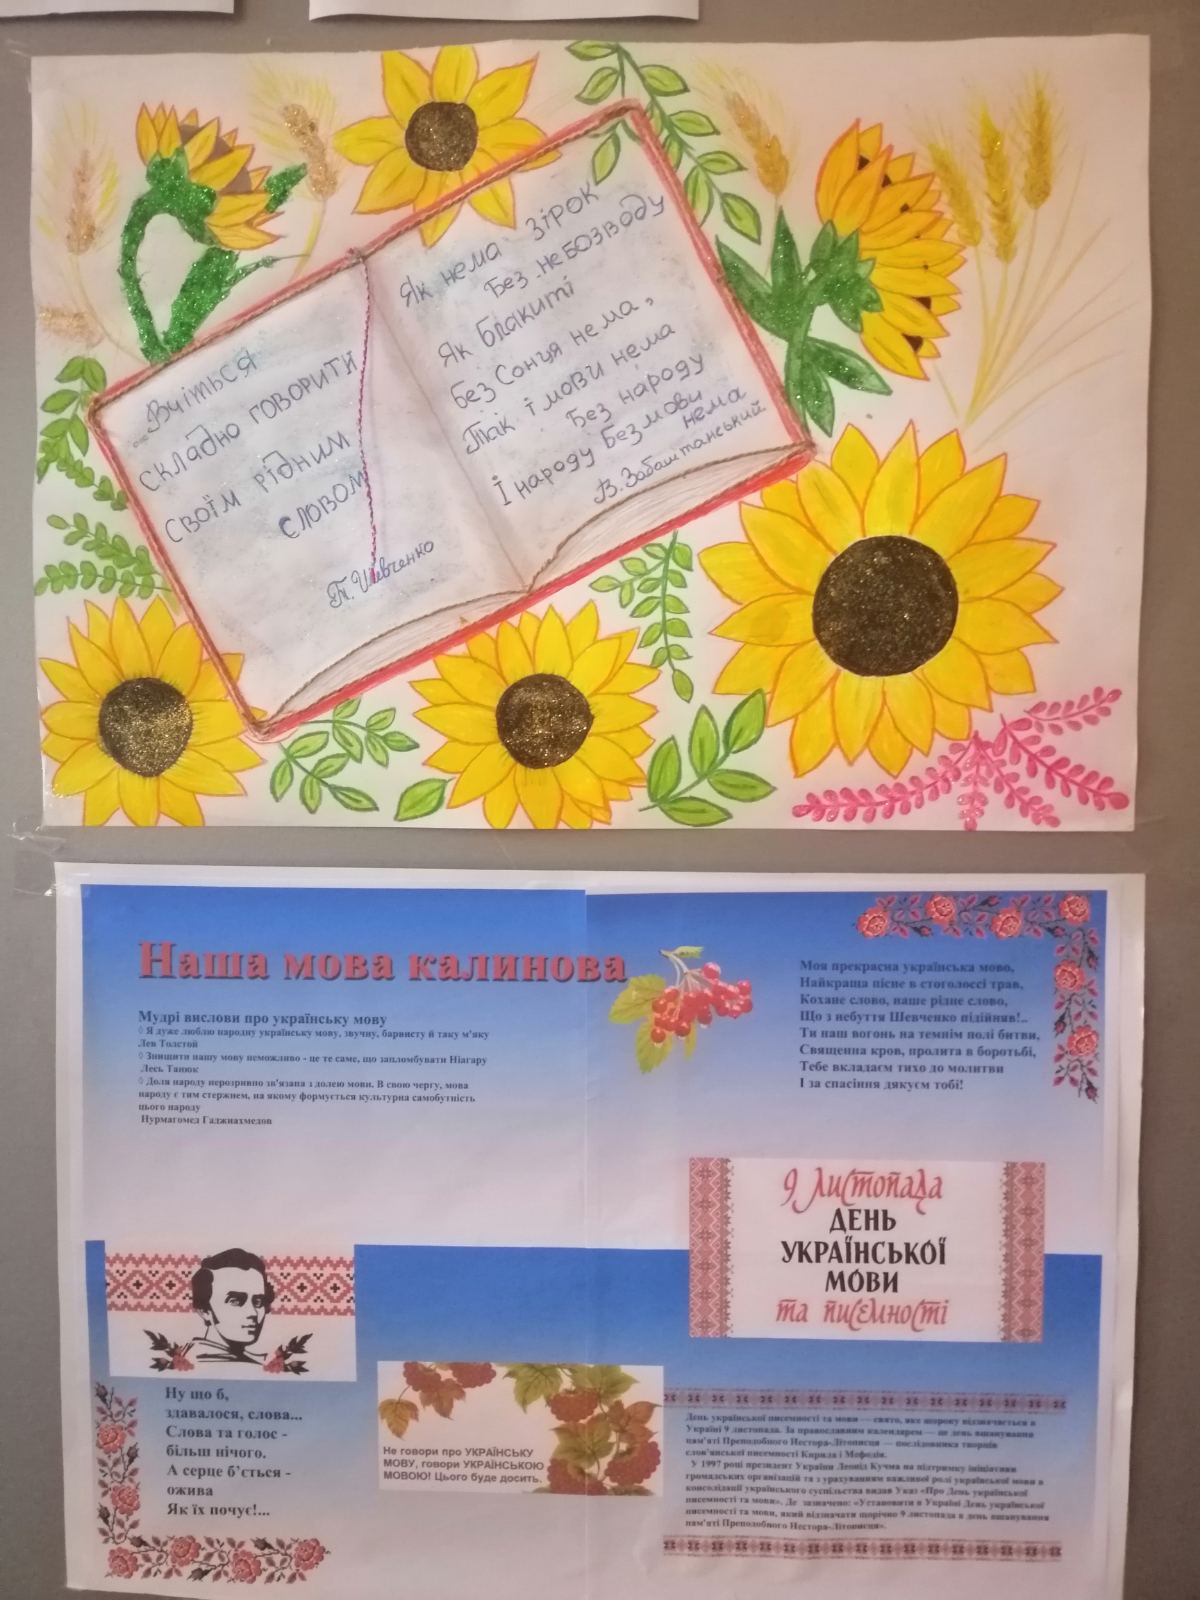 ...Вчіться
складно говорити
своїм рідним
словом
Т. Шевченко
Як нема зірок
Без небозводу
Як блакиті
Без Сонця нема,
Так і мови нема
Без народу
І народу Без мови
нема
В. Забаштанський
Наша мова калинова
Мудрі вислови про українську мову
◊ Я дуже люблю народну українську мову, звучну, барвисту й таку м'яку
Лев Толстой
◊ Знищити нашу мову неможливо - це те саме, що запломбувати Ніагару
Лесь Танюк
◊ Доля народу нерозривно зв'язана з долею мови. В свою чергу, мова
народу є тим стержнем, на якому формується культурна самобутність
цього народу
Нурмагомед Гаджиахмедов
Моя прекрасна українська мово,
Найкраща пісне в стоголоссі трав,
Кохане слово, наше рідне слово,
Що з небуття Шевченко підійняв!..
Ти наш вогонь на темнім полі битви,
Священна кров, пролита в боротьбі,
Тебе вкладаєм тихо до молитви
І за спасіння дякуєм тобі!
9 листопада
ДЕНЬ
УКРАЇНСЬКОЇ
МОВИ
та писемності
Ну що б,
здавалося, слова...
Слова та голос -
більш нічого.
А серце б'ється -
ожива
Як їх почує!...
Не говори про УКРАЇНСЬКУ
МОВУ, говори УКРАЇНСЬКОЮ
МОВОЮ! Цього буде досить.
День української писемності та мови — свято, яке щороку відзначається в
Україні 9 листопада. За православним календарем — це день вшанування
пам'яті Преподобного Нестора-Літописця — послідовника творців
слов'янської писемності Кирила і Мефодія.
У 1997 році президент України Леонід Кучма на підтримку ініціативи
громадських організацій та з урахуванням важливої ролі української мови в
консолідації українського суспільства видав Указ «Про День української
писемності та мови». Де зазначено: «Установити в Україні День української
писемності та мови, який відзначати щорічно 9 листопада в день вшанування
пам'яті Преподобного Нестора-Літописця».